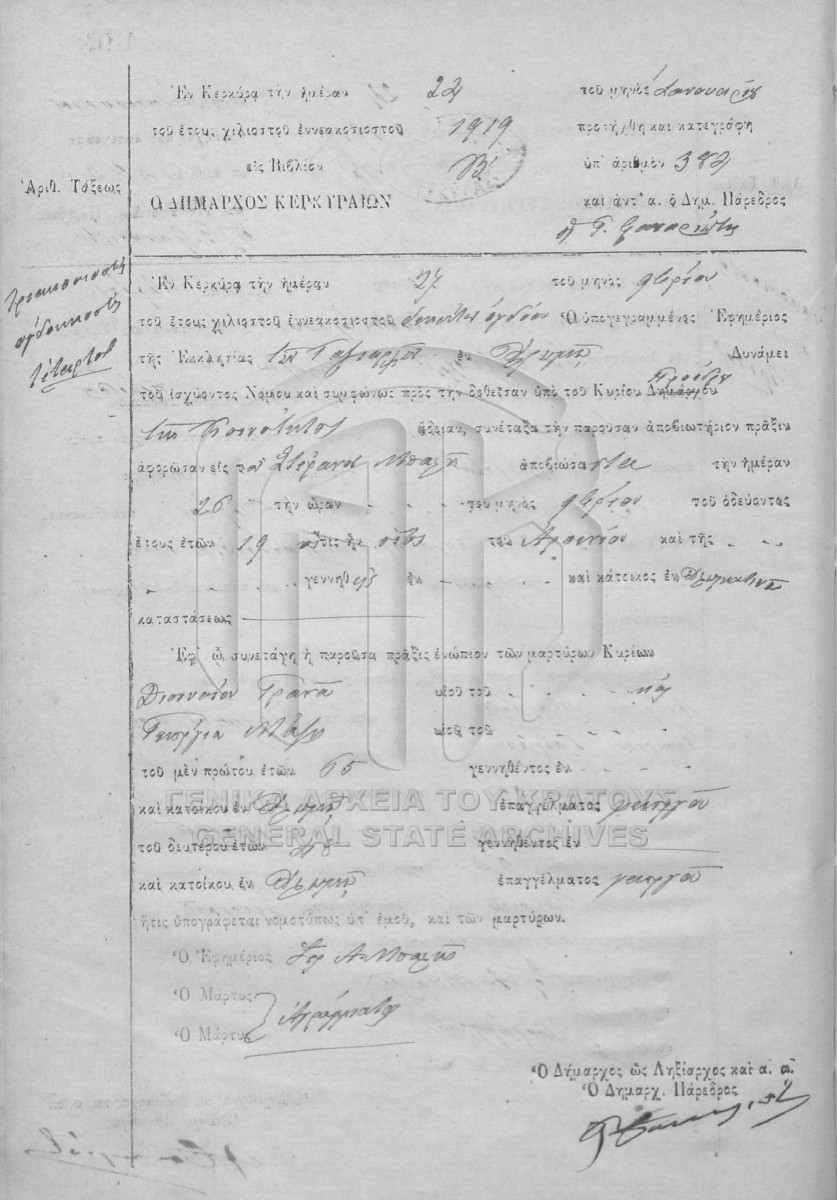 Ἐν Κερκύρᾳ τὴν ἡμέραν 22 τοῦ μηνὸς Ἰανουαρίου
τοῦ ἔτους χιλιοστοῦ ἐννεακοσιοστοῦ 1919 προσήχθη καὶ κατεγράφη
εἰς Βιβλίον Β′ ὑπ' ἀριθμὸν 384
Ἀριθ. Τάξεως
Ὁ ΔΗΜΑΡΧΟΣ ΚΕΡΚΥΡΑΙΩΝ καὶ ἀντ' α. ὁ Δημ. Πάρεδρος
τριακοσιοστὴ
ὀγδοηκοστὴ
τετάρτη
Ἐν Κερκύρᾳ τὴν ἡμέραν 27 τοῦ μηνὸς 9βρίου
τοῦ ἔτους χιλιοστοῦ ἐννεακοσιοστοῦ δεκάτου ὀγδόου Ὁ ὑπογεγραμμένος Ἐφημέριος
τῆς Ἐκκλησίας τῶν Ταξιαρχῶν ἐν Δυνάμει
τοῦ ἰσχύοντος Νόμου καὶ συμφώνως πρὸς τὴν δοθεῖσαν ὑπὸ τοῦ Κυρίου Δημάρχου Προέδρου
τῆς Κοινότητος ἄδειαν, συνέταξα τὴν παροῦσαν ἀποβιωτήριον πρᾶξιν
ἀφορῶσαν εἰς τὸν Στέφανον ἀποβιώσαντα τὴν ἡμέραν
26 τὴν ὥραν τοῦ μηνὸς 9βρίου τοῦ ὁδεύοντος
ἔτους ἐτῶν 19 ὅστις ἦν υἱὸς τοῦ Ἀρσενίου καὶ τῆς
γεννηθεὶς ἐν καὶ κάτοικος ἐν
καταστάσεως
Ἐφ' ᾧ συνετάγη ἡ παροῦσα πρᾶξις ἐνώπιον τῶν μαρτύρων Κυρίων
Διονυσίου υἱοῦ τοῦ καὶ
Γεωργίου υἱοῦ τοῦ
τοῦ μὲν πρώτου ἐτῶν 65 γεννηθέντος ἐν
καὶ κατοίκου ἐν ἐπαγγέλματος γεωργοῦ
ΓΕΝΙΚΑ ΑΡΧΕΙΑ ΤΟΥ ΚΡΑΤΟΥΣ
GENERAL STATE ARCHIVES
τοῦ δευτέρου ἐτῶν γεννηθέντος ἐν
καὶ κατοίκου ἐν ἐπαγγέλματος γεωργοῦ
ἥτις ὑπογράφεται νομοτύπως ὑπ' ἐμοῦ, καὶ τῶν μαρτύρων.
Ὁ Ἐφημέριος
Ὁ Μάρτυς
Ἀγράμματοι
Ὁ Μάρτυς
Ὁ Δήμαρχος ὡς Ληξίαρχος καὶ α. α.
Ὁ Δημαρχ. Πάρεδρος